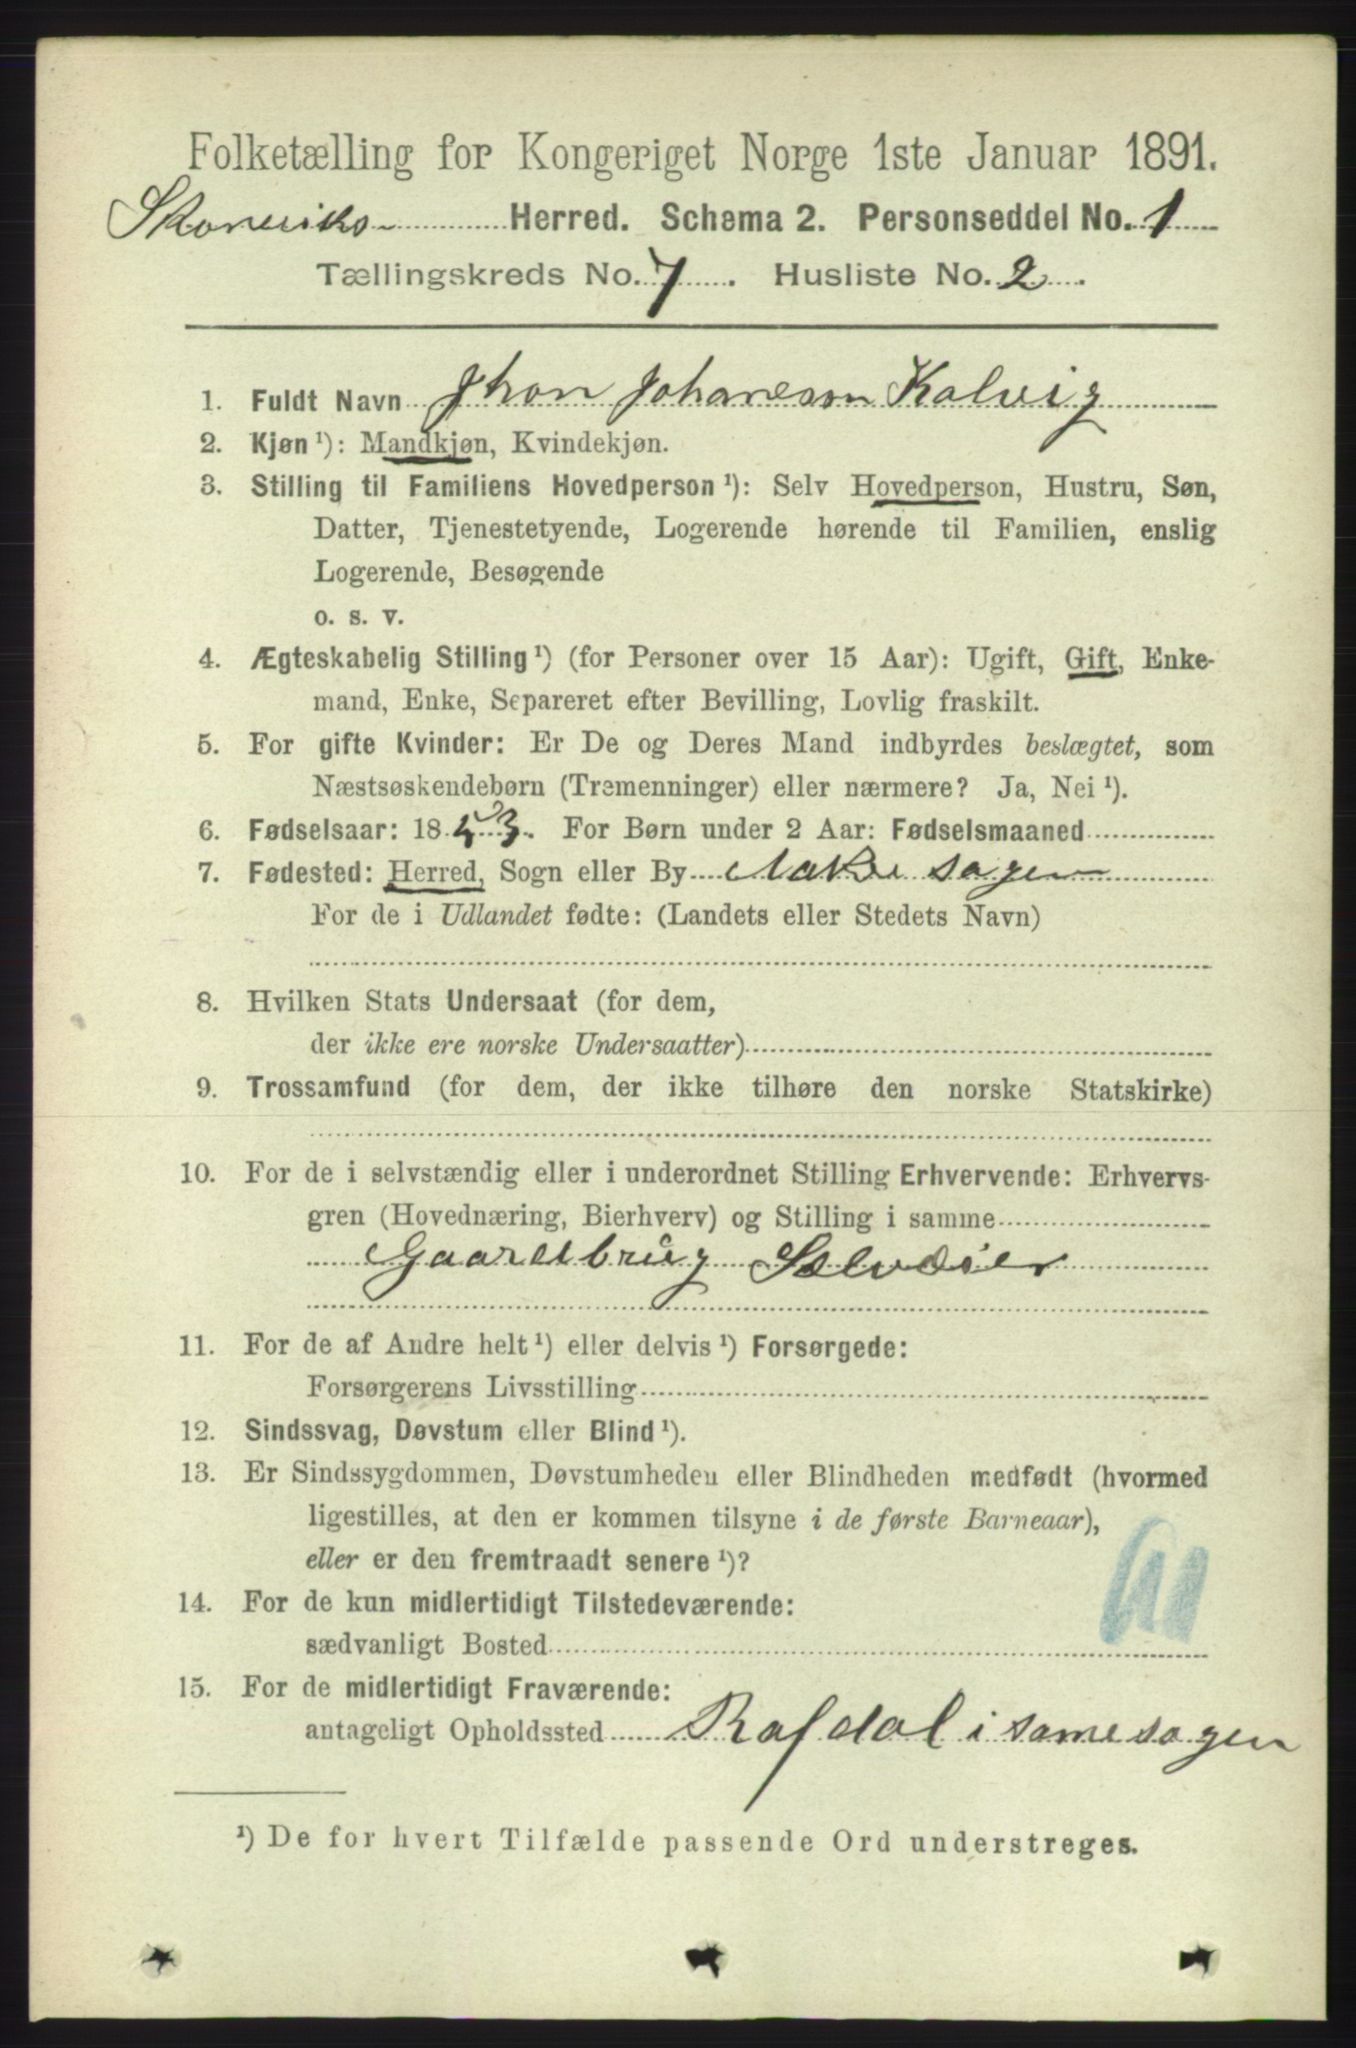 Folketælling for Kongeriget Norge 1ste Januar 1891.
Skoneviks Herred. Schema 2. Personseddel No. 1
Tællingskreds No. 7. Husliste No. 2.
1. Fuldt Navn Jhon Johaneson Kalvig
2. Kjøn ¹): Mandkjøn, Kvindekjøn.
3. Stilling til Familiens Hovedperson ¹): Selv Hovedperson, Hustru, Søn,
Datter, Tjenestetyende, Logerende hørende til Familien, enslig
Logerende, Besøgende
o. s. v.
4. Ægteskabelig Stilling ¹) (for Personer over 15 Aar): Ugift, Gift, Enke-
mand, Enke, Separeret efter Bevilling, Lovlig fraskilt.
5. For gifte Kvinder: Er De og Deres Mand indbyrdes beslægtet, som
Næstsøskendebørn (Tremenninger) eller nærmere? Ja, Nei ¹).
6. Fødselsaar: 1853. For Børn under 2 Aar: Fødselsmaaned
7. Fødested: Herred, Sogn eller By Aakre sogen
For de i Udlandet fødte: (Landets eller Stedets Navn)
8. Hvilken Stats Undersaat (for dem,
der ikke ere norske Undersaatter)
9. Trossamfund (for dem, der ikke tilhøre den norske Statskirke)
10. For de i selvstændig eller i underordnet Stilling Erhvervende: Erhvervs-
gren (Hovednæring, Bierhverv) og Stilling i samme
Gaardbrug Selveier
11. For de af Andre helt ¹) eller delvis ¹) Forsørgede:
Forsørgerens Livsstilling
12. Sindssvag, Døvstum eller Blind ¹).
13. Er Sindssygdommen, Døvstumheden eller Blindheden medfødt (hvormed
ligestilles, at den er kommen tilsyne i de første Barneaar),
eller er den fremtraadt senere ¹)?
14. For de kun midlertidigt Tilstedeværende:
sædvanligt Bosted
15. For de midlertidigt Fraværende:
antageligt Opholdssted Rafdal i same sogen
¹) De for hvert Tilfælde passende Ord understreges.